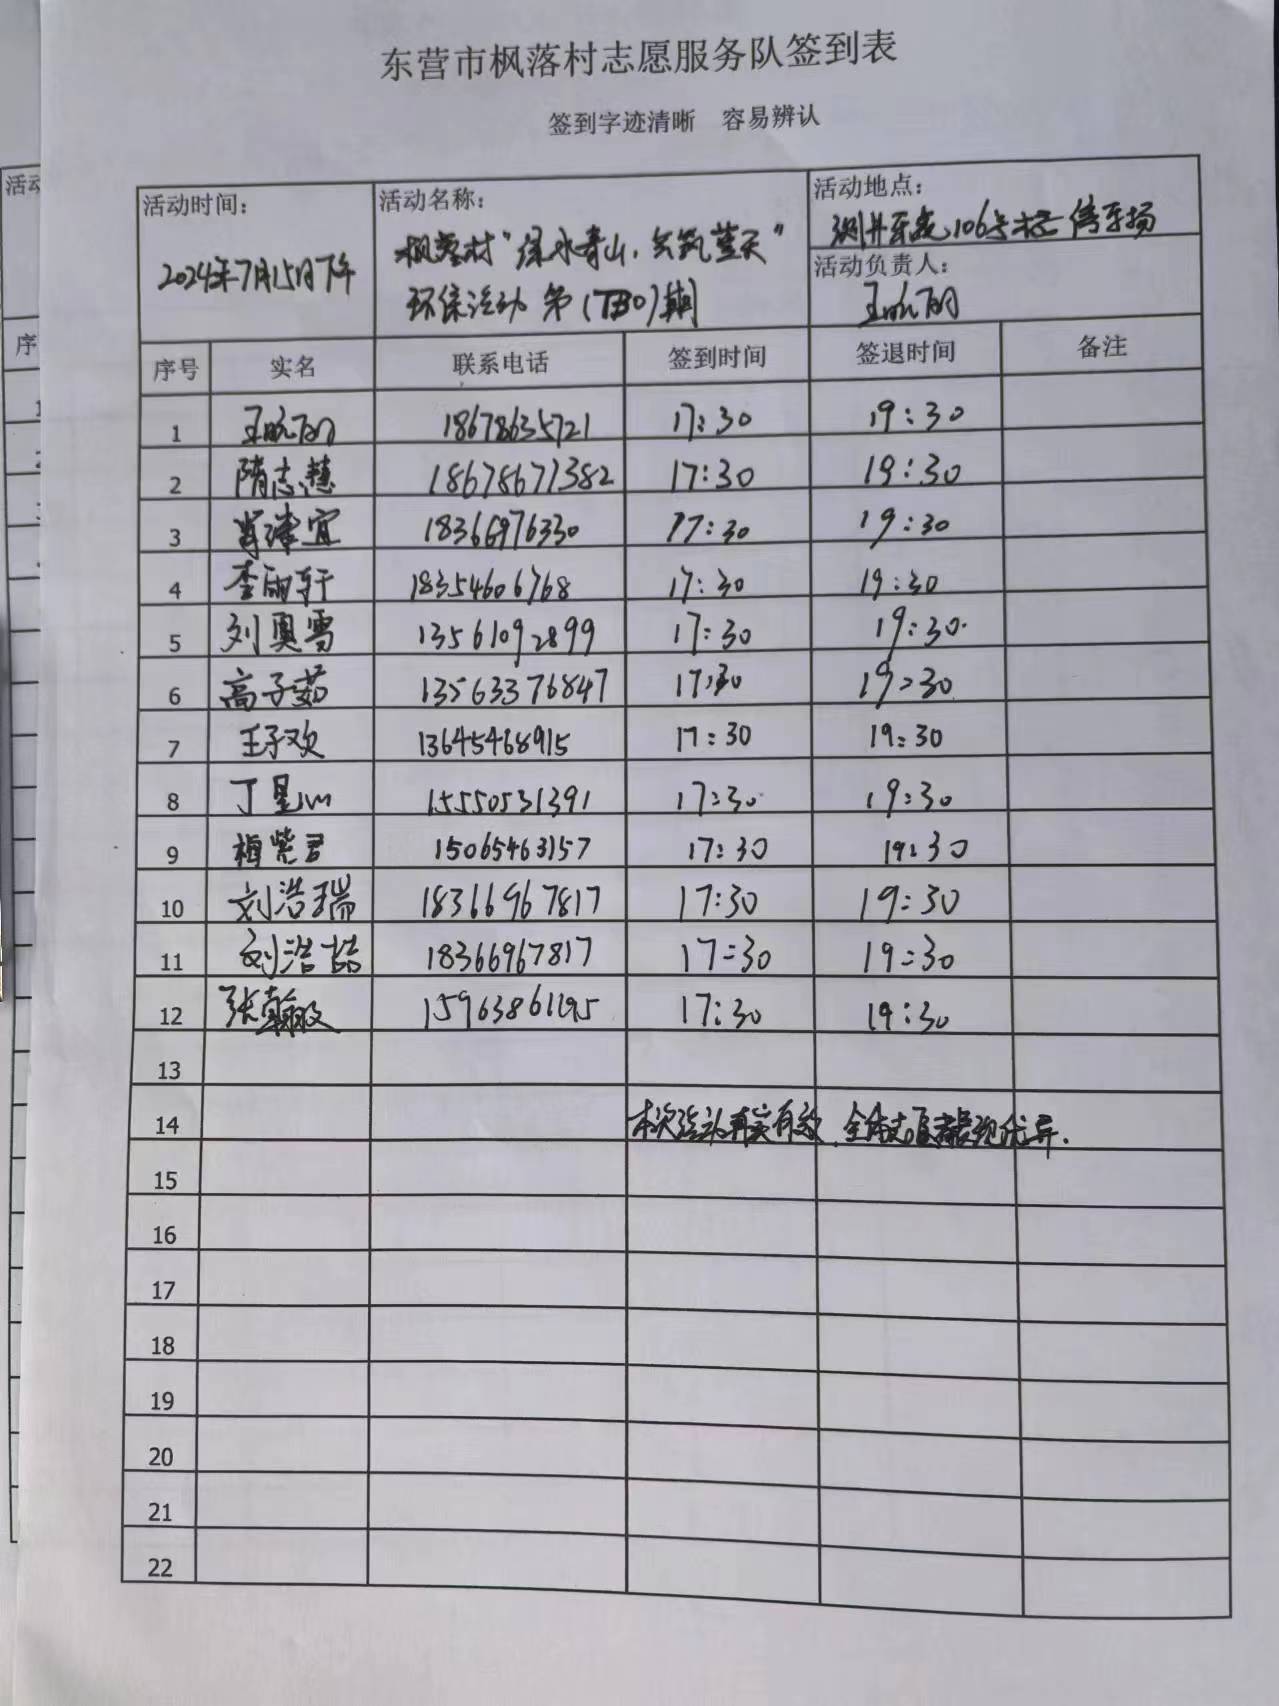 东营市枫落村志愿服务队签到表
签到字迹清晰 容易辨认
活动时间：
2024年7月15日下午
活动名称：
枫落村“绿水青山，共筑蓝天”
环保活动 第()期
活动地点：
106号楼 停车场
活动负责人：
序号 实名 联系电话 签到时间 签退时间 备注
1 18678635721 17:30 19:30
2 隋志慧 18678671382 17:30 19:30
3 肖津宜 18366976330 17:30 19:30
4 李雨轩 18354606768 17:30 19:30
5 刘奥雪 13561092899 17:30 19:30
6 高子茹 13563376847 17:30 19:30
7 王子欢 13645468915 17:30 19:30
8 丁星 15550531391 17:30 19:30
9 梅紫君 15065463157 17:30 19:30
10 刘浩瑞 18366967817 17:30 19:30
11 刘浩喆 18366967817 17:30 19:30
12 张翰 17:30 19:30
13
14 本次活动真实有效，全体志愿者表现优异.
15
16
17
18
19
20
21
22
活动
序